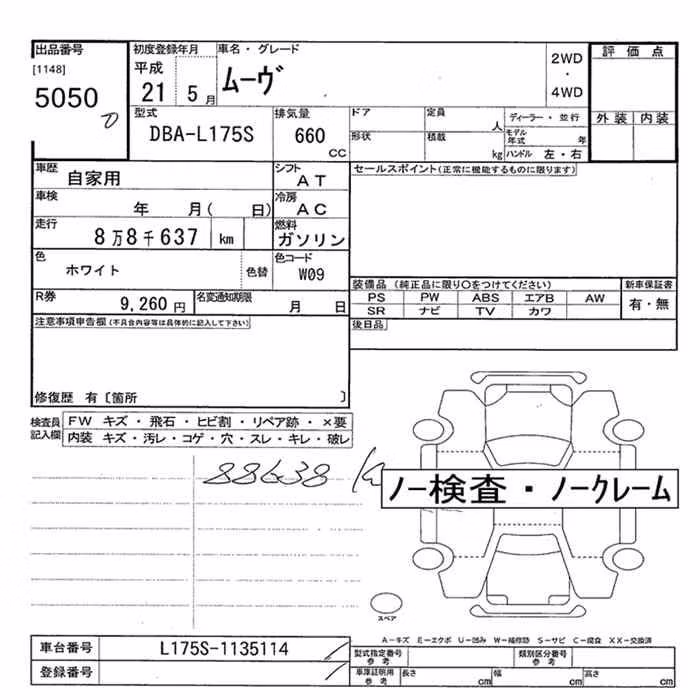 出品番号 初度登録年月 車名・グレード 評価点
[1148] 平成 ムーヴ 2WD
5050 21 5月 ・
4WD
型式 排気量 ドア 定員 ディーラー・並行 外装 内装
DBA-L175S 660 人 モデル年式 年
CC 形状 積載 kg ハンドル 左・右
車歴 自家用 シフト AT セールスポイント(正常に機能するものに限ります)
車検 年 月( 日) 冷房 AC
走行 8万8千637 km 燃料 ガソリン
色 ホワイト 色替 色コード W09
装備品 (純正品に限り○をつけてください) 新車保証書
R券 9,260円 名変通知期限 月 日 PS PW ABS エアB AW 有・無
SR ナビ TV カワ
注意事項申告欄(不具合内容等は具体的に記入して下さい) 後日品
修復歴 有〔箇所 〕
検査員 FW キズ・飛石・ヒビ割・リペア跡・×要
記入欄 内装 キズ・汚レ・コゲ・穴・スレ・キレ・破レ
88638 km
ノー検査・ノークレーム
スペア
A-キズ E-エクボ U-凹み W-補修跡 S-サビ C-腐食 XX-交換済
車台番号 L175S-1135114 型式指定番号 参考 類別区分番号 参考
登録番号 車庫証明用 参考 長さ cm 幅 cm 高さ cm